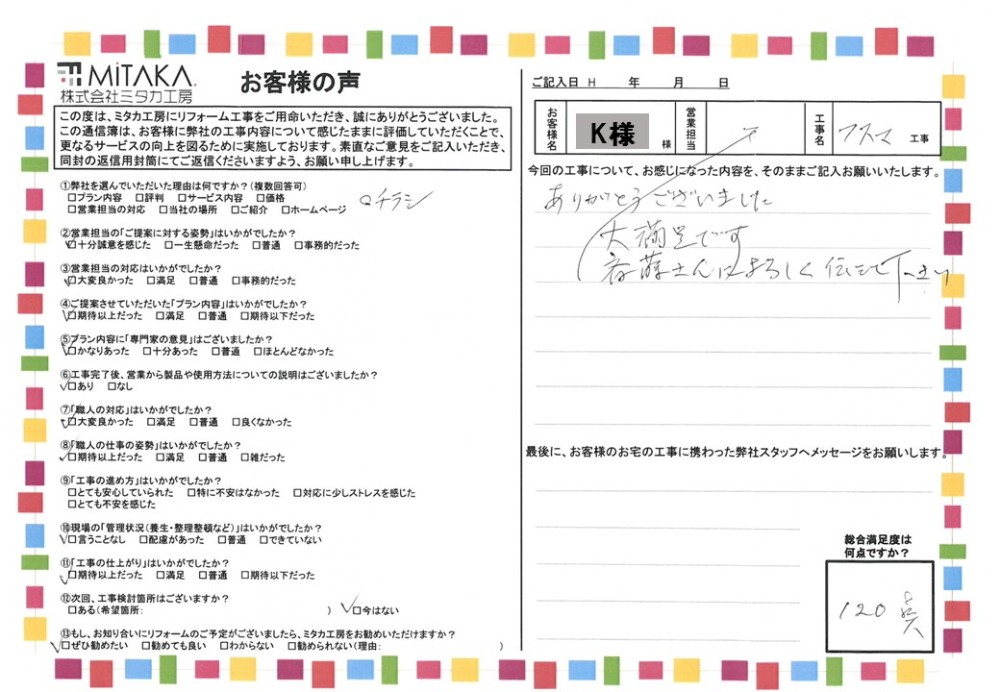 MiTAKA
株式会社ミタカ工房
お客様の声
この度は、ミタカ工房にリフォーム工事をご用命いただき、誠にありがとうございました。
この通信簿は、お客様に弊社の工事内容について感じたままに評価していただくことで、
更なるサービスの向上を図るために実施しております。素直なご意見をご記入いただき、
同封の返信用封筒にてご返信くださいますよう、お願い申し上げます。
①弊社を選んでいただいた理由は何ですか？（複数回答可）
□プラン内容 □評判 □サービス内容 □価格
□営業担当の対応 □当社の場所 □ご紹介 □ホームページ
□チラシ
②営業担当の「ご提案に対する姿勢」はいかがでしたか？
□十分誠意を感じた □一生懸命だった □普通 □事務的だった
③営業担当の対応はいかがでしたか？
□大変良かった □満足 □普通 □事務的だった
④ご提案させていただいた「プラン内容」はいかがでしたか？
□期待以上だった □満足 □普通 □期待以下だった
⑤プラン内容に「専門家の意見」はございましたか？
□かなりあった □十分あった □普通 □ほとんどなかった
⑥工事完了後、営業から製品や使用方法についての説明はございましたか？
□あり □なし
⑦「職人の対応」はいかがでしたか？
□大変良かった □満足 □普通 □良くなかった
⑧「職人の仕事の姿勢」はいかがでしたか？
□期待以上だった □満足 □普通 □雑だった
⑨「工事の進め方」はいかがでしたか？
□とても安心していられた □特に不安はなかった □対応に少しストレスを感じた
□とても不安を感じた
⑩現場の「管理状況（養生・整理整頓など）」はいかがでしたか？
□言うことなし □配慮があった □普通 □できていない
⑪「工事の仕上がり」はいかがでしたか？
□期待以上だった □満足 □普通 □期待以下だった
⑫次回、工事検討箇所はございますか？
□ある（希望箇所： ） □今はない
⑬もし、お知り合いにリフォームのご予定がございましたら、ミタカ工房をお勧めいただけますか？
□ぜひ勧めたい □勧めても良い □わからない □勧められない（理由： ）
ご記入日 H 年 月 日
お客様名 K様 様 営業担当 工事名 フスマ 工事
今回の工事について、お感じになった内容を、そのままご記入お願いいたします。
ありがとうございました
大満足です
斉藤さんによろしく伝えて下さい
最後に、お客様のお宅の工事に携わった弊社スタッフへメッセージをお願いします。
総合満足度は
何点ですか？
120点